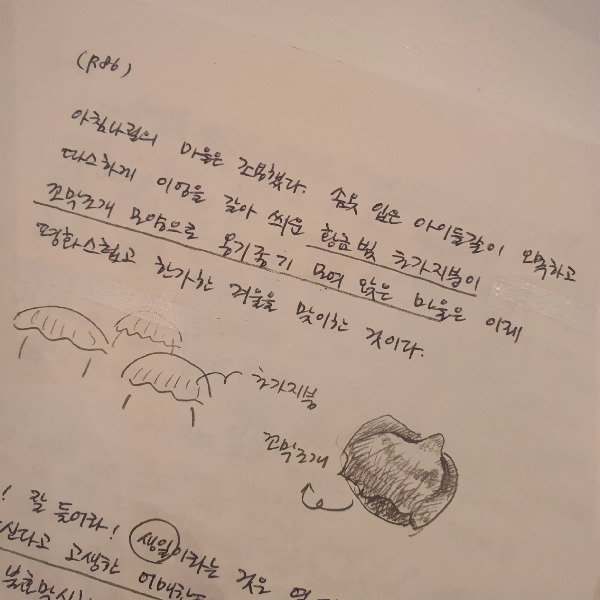 (P.86)
아침나절의 마을은 조용했다. 솜옷 입은 아이들같이 오복하고
따스하게 이엉을 갈아 씌운 황금빛 초가지붕이
꼬막조개 모양으로 옹기종기 모여 앉은 마을은 이제
평화스럽고 한가한 겨울을 맞이한 것이다.
초가지붕
꼬막조개
! 잘 들어라!
생일이라는 것은
산다고 고생한